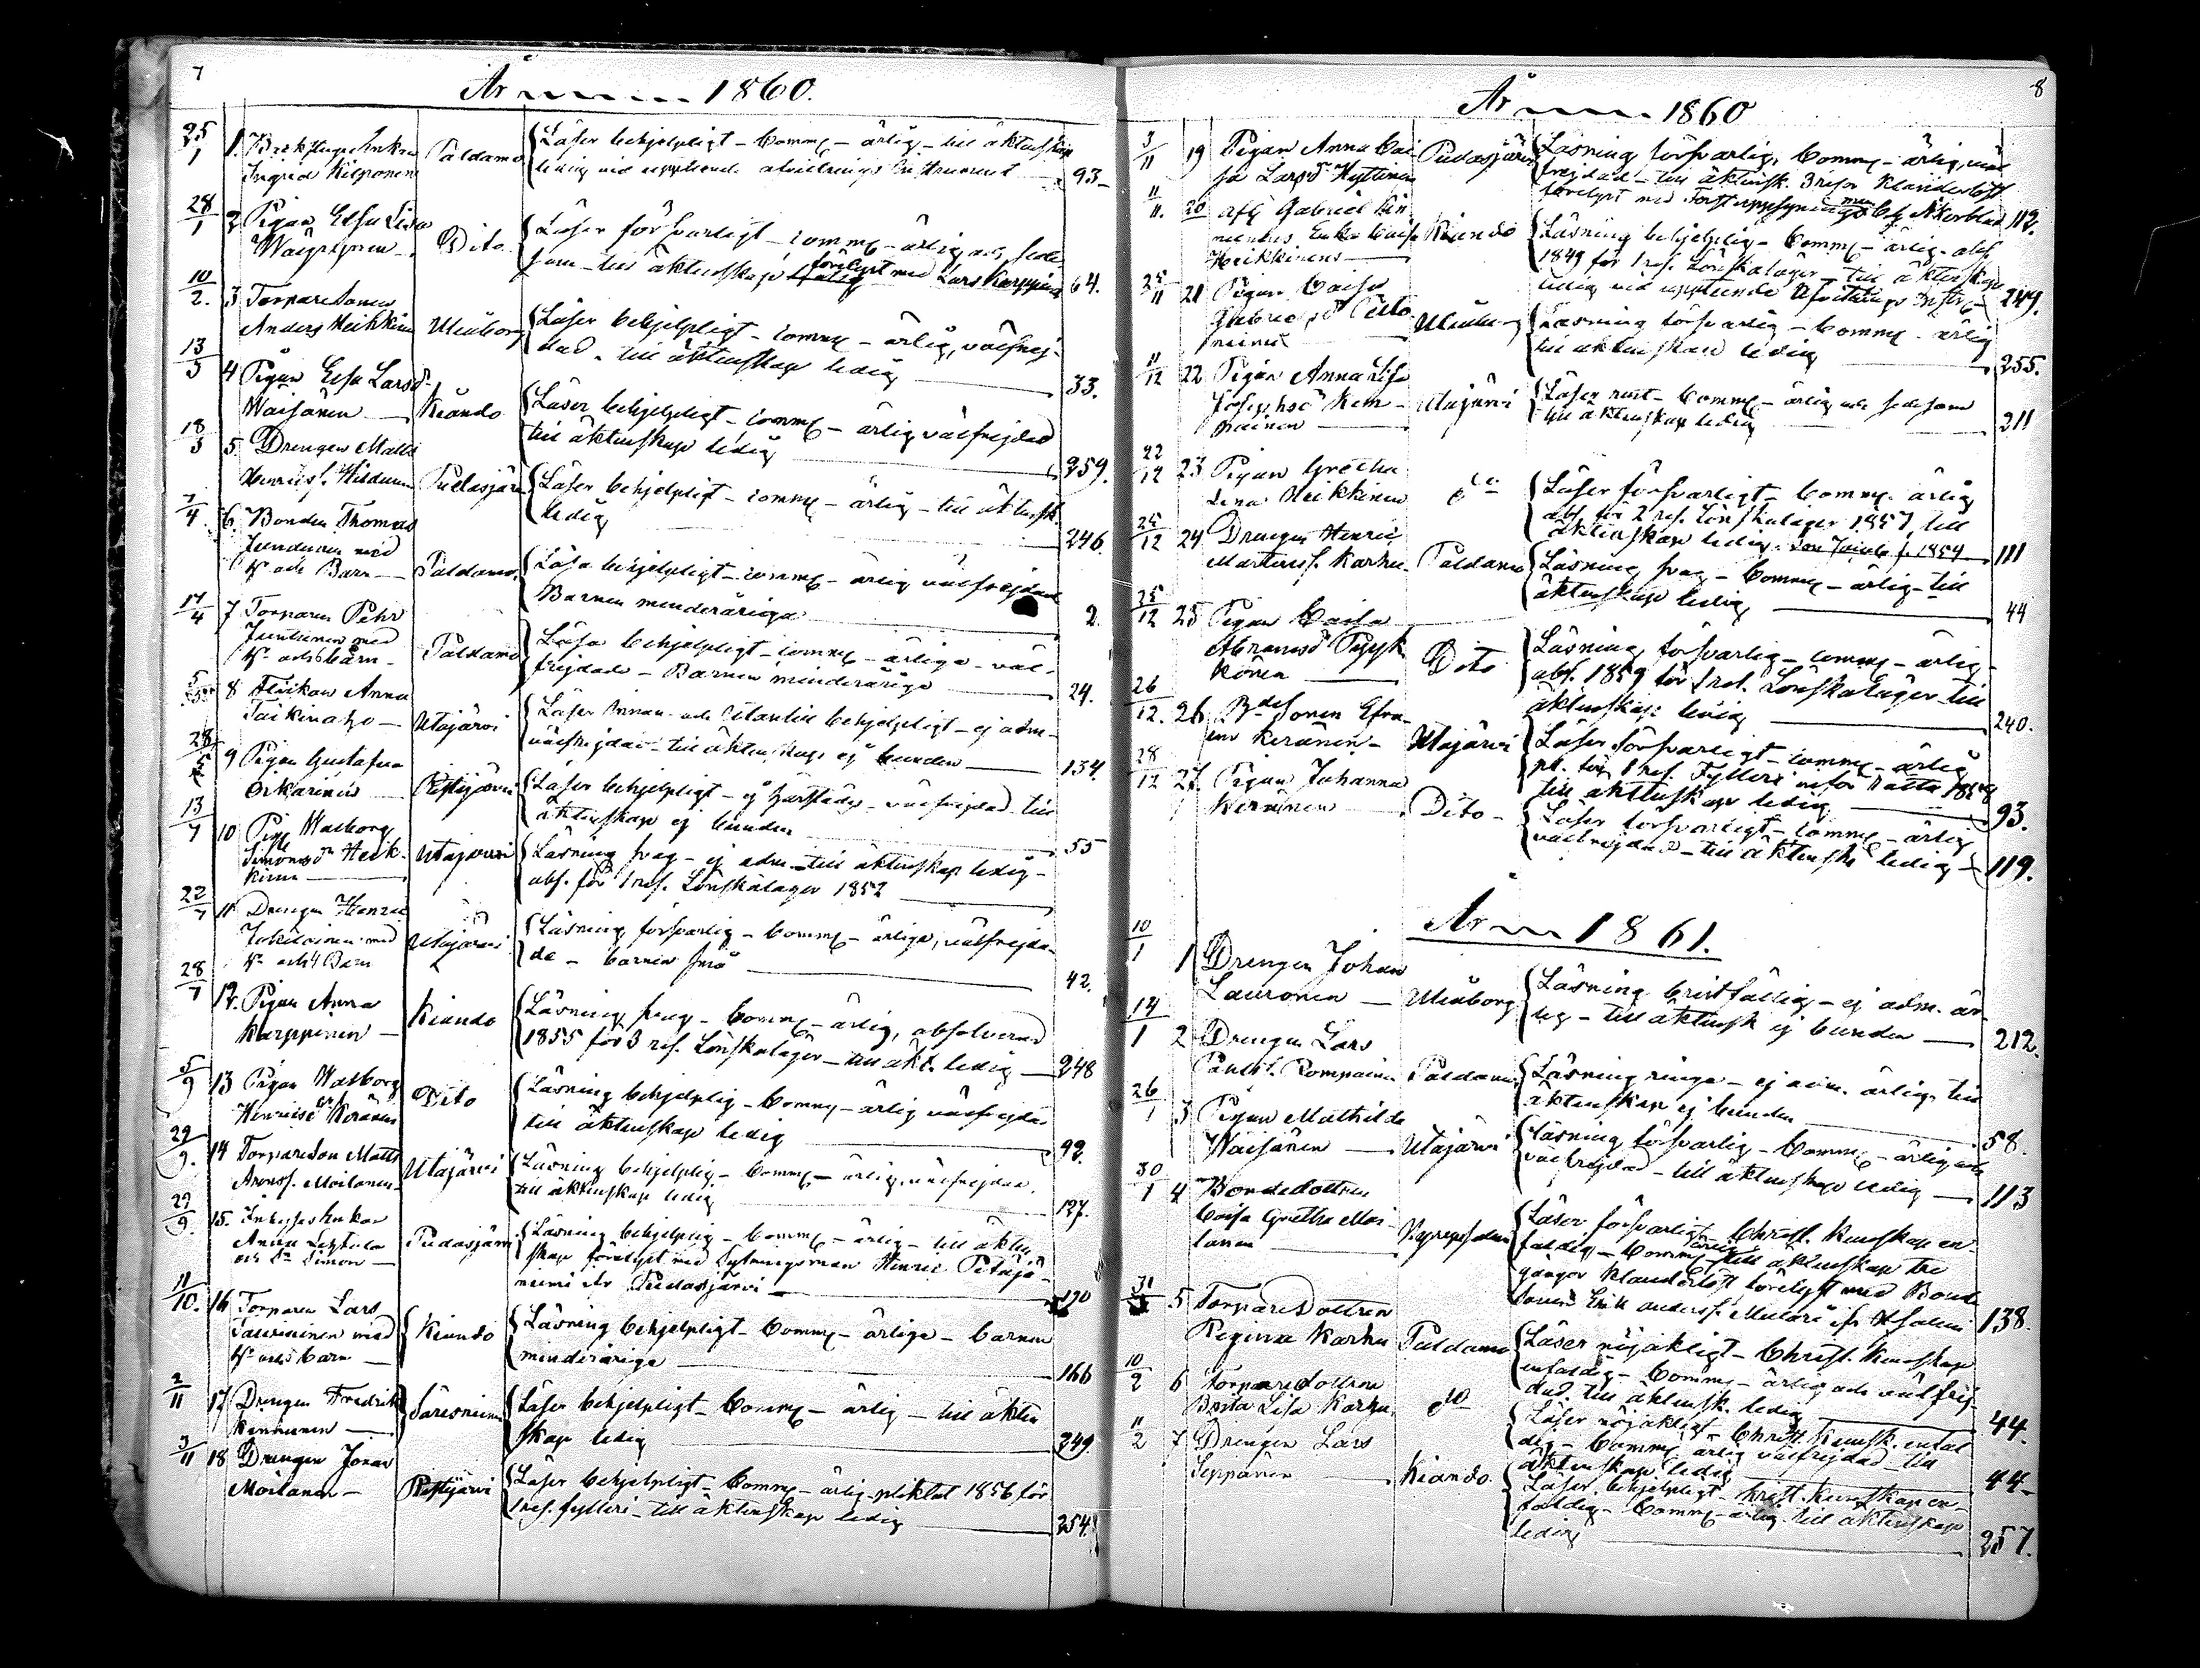 7
År 1860.
25/1 1. Enkan
Ingrid Kilponen Paldamo Läser behjelpligt - Comm - ärlig - till äktenskap
ledig vid uppteende 93-
28/1 2 Pigan Elsa Lisa
Dito Läser försvarligt - comm - ärlig och sede
sam - till äktenskap förelyst med Lars Karppinen 64.
10/2. 3 Torparesonen
Anders Heikkinen Uleåborg Läser behjelpligt - comm - ärlig, välfrej-
dad - till äktenskap ledig 33.
13/3 4 Pigan Elsa Larsd
Waisänen Kiando Läser behjelpligt - comm - ärlig välfrejdad
till äktenskap ledig 259.
18/3 5. Drengen Matts
Henrics. Pudasjärvi Läser behjelpligt - comm - ärlig - till äktensk.
ledig 246.
7/4. 6. Bonden Thomas
Juntunen med
h. och Barn Paldamo. Läsa behjelpligt - comm - ärlig välfrejdad
Barnen minderåriga 2.
17/4 7 Torparen Pehr
Juntunen med
h. och 6 barn - Paldamo Läsa behjelpligt - comm - ärliga - väl-
frejdade - Barnen minderåriga 24.
8 Flickan Anna
Taikinaho - Utajärvi Läser innan och utantill behjelpligt - ej adm -
välfrejdad - till äktenskap ej bunden 134.
28/5 9 Pigan Gustafva
Ristijärvi Läser behjelpligt - välfrejdad till
äktenskap ej bunden 55
13/7 10 Pig. Walborg
Simonsd. Heik-
kinen Utajärvi Läsning svag - ej adm - till äktenskap ledig -
abs. för 1 res. Lönskaläger 1852
22/7 11 Drengen Henric
med
h. och 4 Barn Utajärvi Läsning försvarlig - Comm - ärliga, välfrejda-
de - barnen små 42.
28/7 12. Pigan Anna
Karppinen - Kiando Läsning svag - Comm - ärlig, absolverad
1855 för 3 res. Lönskaläger - till äkt. ledig 248
5/9 13 Pigan Walborg
Henricsd. Keränen Dito Läsning behjelplig - Comm - ärlig välfrejdad
till äktenskap ledig 92.
29/9. 14 Torpareson Matts
Aronss. Moilanen Utajärvi Läsning behjelplig - Comm - ärlig, välfrejdad,
till äktenskap ledig 127.
29/9. 15. Enkan
Anna
och Sn Simon - Pudasjärvi Läsning behjelplig - Comm - ärlig - till äkten-
skap förelyst med Sytningsman Henric Petäjä-
niemi ifr Pudasjärvi 170
11/10. 16 Torparen Lars
Tauriainen med
h. och 5 barn - Kiando Läsning behjelpligt - Comm - ärliga - barnen
minderåriga 166
2/11 17 Drengen Fredrik
Kinnunen Säresniemi Läser behjelpligt - Comm - ärlig - till äkten
skap ledig 249.
3/11 18 Drengen Jonas
Moilanen - Ristijärvi Läser behjelpligt - Comm - ärlig - pliktat 1856 för
1 res. fylleri - till äktenskap ledig 254.
8
År 1860
3/11 19 Pigan Anna Cai
sa Larsd. Hyttinen Pudasjärvi Läsning försvarlig, Comm - ärlig, väl
frejdad - till äktensk. 3 resor klanderlöst
förelyst med 112.
11/11. 20 afl. Gabriel Kin
nunens Enka Caisa
Heikkinen Kiando Läsning behjelplig - Comm - ärlig - abs.
1849 för 1 res. Lönskaläger - till äktenskap
ledig vid uppteende 249.
25/11 21 Pigan Caisa
Gabrielsd. Läsning försvarlig - Comm - ärlig
till äktenskap ledig 255.
11/12 22 Pigan Anna Lisa
Josephsd. Kem-
painen Utajärvi Läser rent - Comm - ärlig och sedesam
till äktenskap ledig 211
22/12 23 Pigan Gretha
Lena Heikkinen do Läser försvarligt - Comm - ärlig
abs. för 2 res. Lönskaläger 1857, till
äktenskap ledig. 1854 111
25/12 24 Drengen Henric
Mårtenss. Karhu Paldamo Läsning svag - Comm - ärlig - till
äktenskap ledig 44
25/12 25 Pigan Caisa
Abramsd. Pyyk
könen Dito Läsning försvarlig - comm - ärlig -
abs. 1859 för 1 res. Lönskaläger - till
äktenskap: ledig 240.
26/12. 26 Bdesonen Efra-
im Keränen - Utajärvi Läser försvarligt - comm - ärlig
pl. för 1 res. Fylleri inför rätta 1858
till äktenskap ledig 93.
28/12 27. Pigan Johanna
Dito - Läser försvarligt - comm - ärlig
välfrejdad - till äktensk. ledig 119.
År 1861.
10/1 1 Drengen Johan
Lauronen - Uleåborg Läsning bristfällig - ej adm. är-
lig - till äktensk ej bunden 212.
14/1 2 Drengen Lars
Paulss. Romppainen Paldamo Läsning ringa - ej adm. ärlig, till
äktenskap ej bunden 58.
26/1 3 Pigan Mathilda
Waisänen - Utajärvi Läsning försvarlig - Comm - ärlig och
välfrejdad - till äktenskap ledig 113
30/1 4 Bondedottren
Caisa Gretha Moi-
lanen Läser försvarligt - Christ. kunskap en-
faldig - Comm - ärlig till äktenskap tre
gånger klanderlöst förelyst med Bonde
sonen Erik Anderss. 138.
31/1 5 Torparedottren
Regina Karhu Paldamo Läser nöjaktigt - Christ. kunskap
enfaldig - Comm - ärlig och välfrej-
dad. till äktensk. ledig 44.
10/2 6 Torparedottren
Brita Lisa Karhu. do Läser nöjaktigt - Christ. kunsk. enfal
dig - Comm - ärlig välfrejdad - till
äktenskap ledig 44-
11/2 7 Drengen Lars
Seppänen Kiando. Läser behjelpligt - Christ. kunskap en-
faldig - Comm - ärlig - till äktenskap
ledig 257.